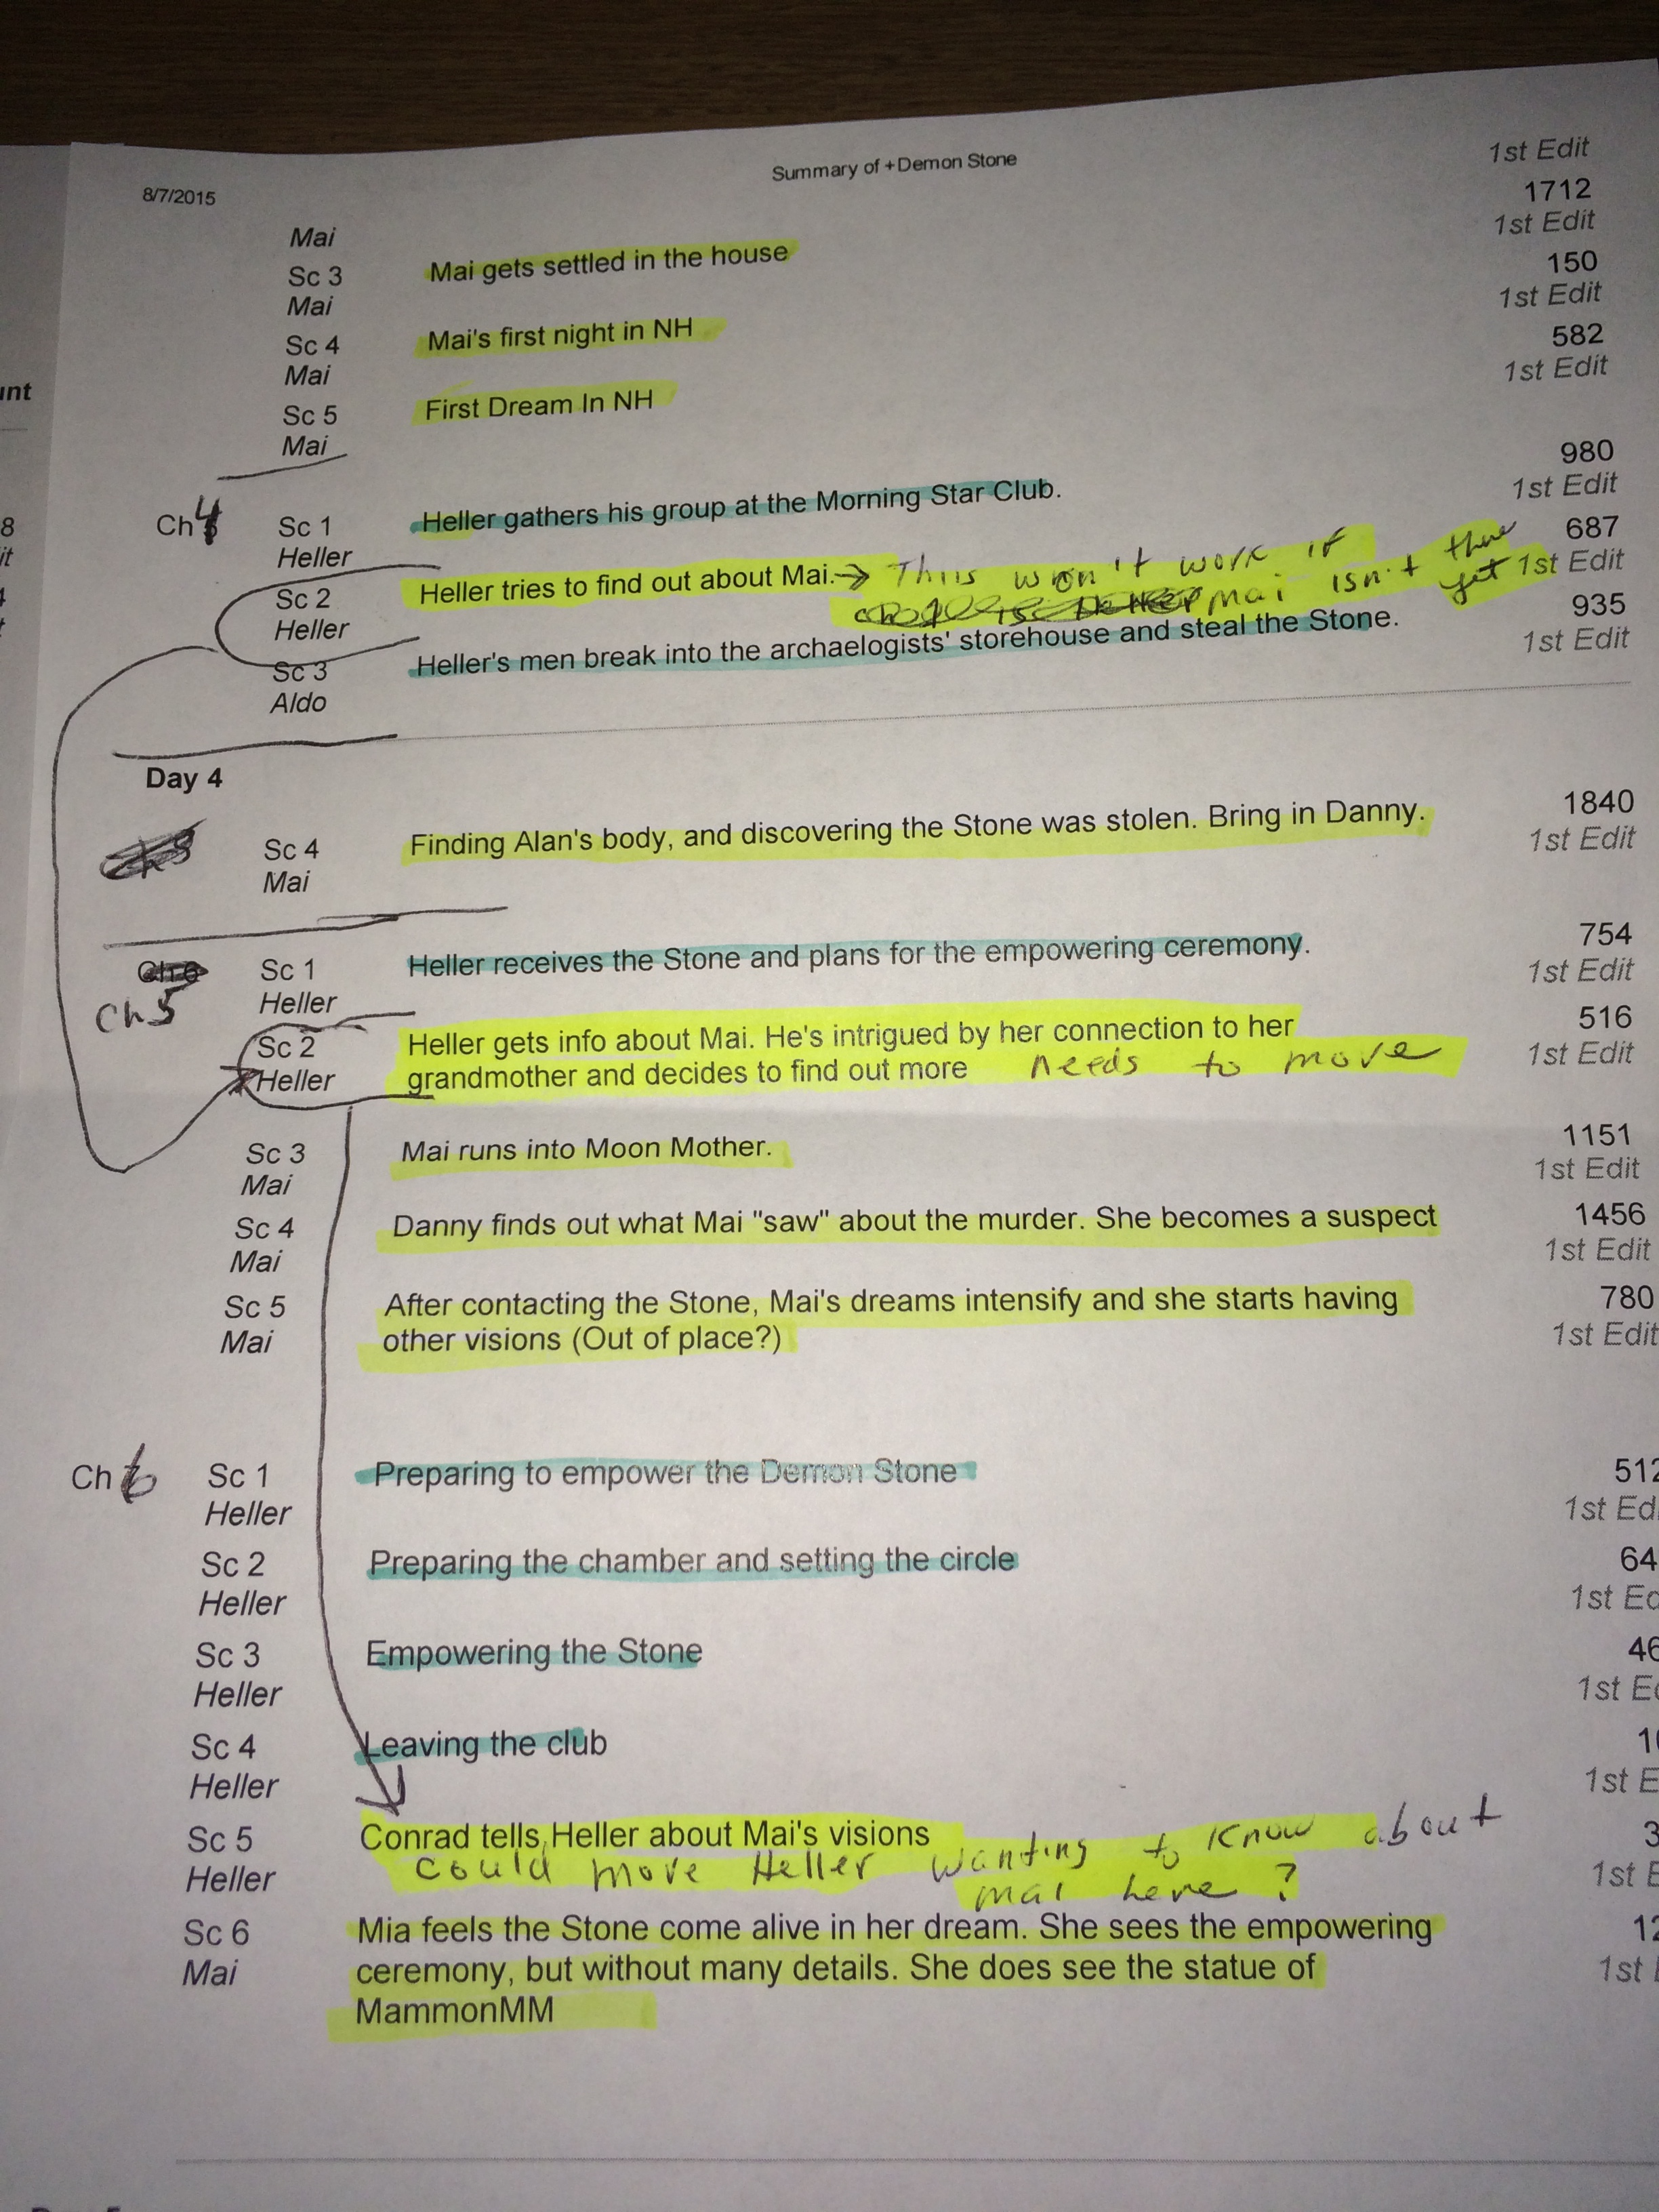 8/7/2015 Summary of +Demon Stone 1st Edit
Mai 1712
1st Edit
Sc 3 Mai gets settled in the house 150
Mai 1st Edit
Sc 4 Mai's first night in NH 582
Mai 1st Edit
Sc 5 First Dream In NH
Mai
Ch 4 Sc 1 Heller gathers his group at the Morning Star Club. 980
Heller 1st Edit
Sc 2 Heller tries to find out about Mai. → This won't work if 687
Heller Mai isn't there yet 1st Edit
Sc 3 Heller's men break into the archaelogists' storehouse and steal the Stone. 935
Aldo 1st Edit
Day 4
Sc 4 Finding Alan's body, and discovering the Stone was stolen. Bring in Danny. 1840
Mai 1st Edit
Sc 1 Heller receives the Stone and plans for the empowering ceremony. 754
Ch 5 Heller 1st Edit
Sc 2 Heller gets info about Mai. He's intrigued by her connection to her 516
Heller grandmother and decides to find out more needs to move 1st Edit
Sc 3 Mai runs into Moon Mother. 1151
Mai 1st Edit
Sc 4 Danny finds out what Mai "saw" about the murder. She becomes a suspect 1456
Mai 1st Edit
Sc 5 After contacting the Stone, Mai's dreams intensify and she starts having 780
Mai other visions (Out of place?) 1st Edit
Ch 6 Sc 1 Preparing to empower the Demon Stone 512
Heller 1st Ed
Sc 2 Preparing the chamber and setting the circle 64
Heller 1st Ed
Sc 3 Empowering the Stone 46
Heller 1st E
Sc 4 Leaving the club 1
Heller 1st E
Sc 5 Conrad tells Heller about Mai's visions 3
Heller could move Heller wanting to know about 1st E
mai here?
Sc 6 Mia feels the Stone come alive in her dream. She sees the empowering 12
Mai ceremony, but without many details. She does see the statue of 1st
MammonMM